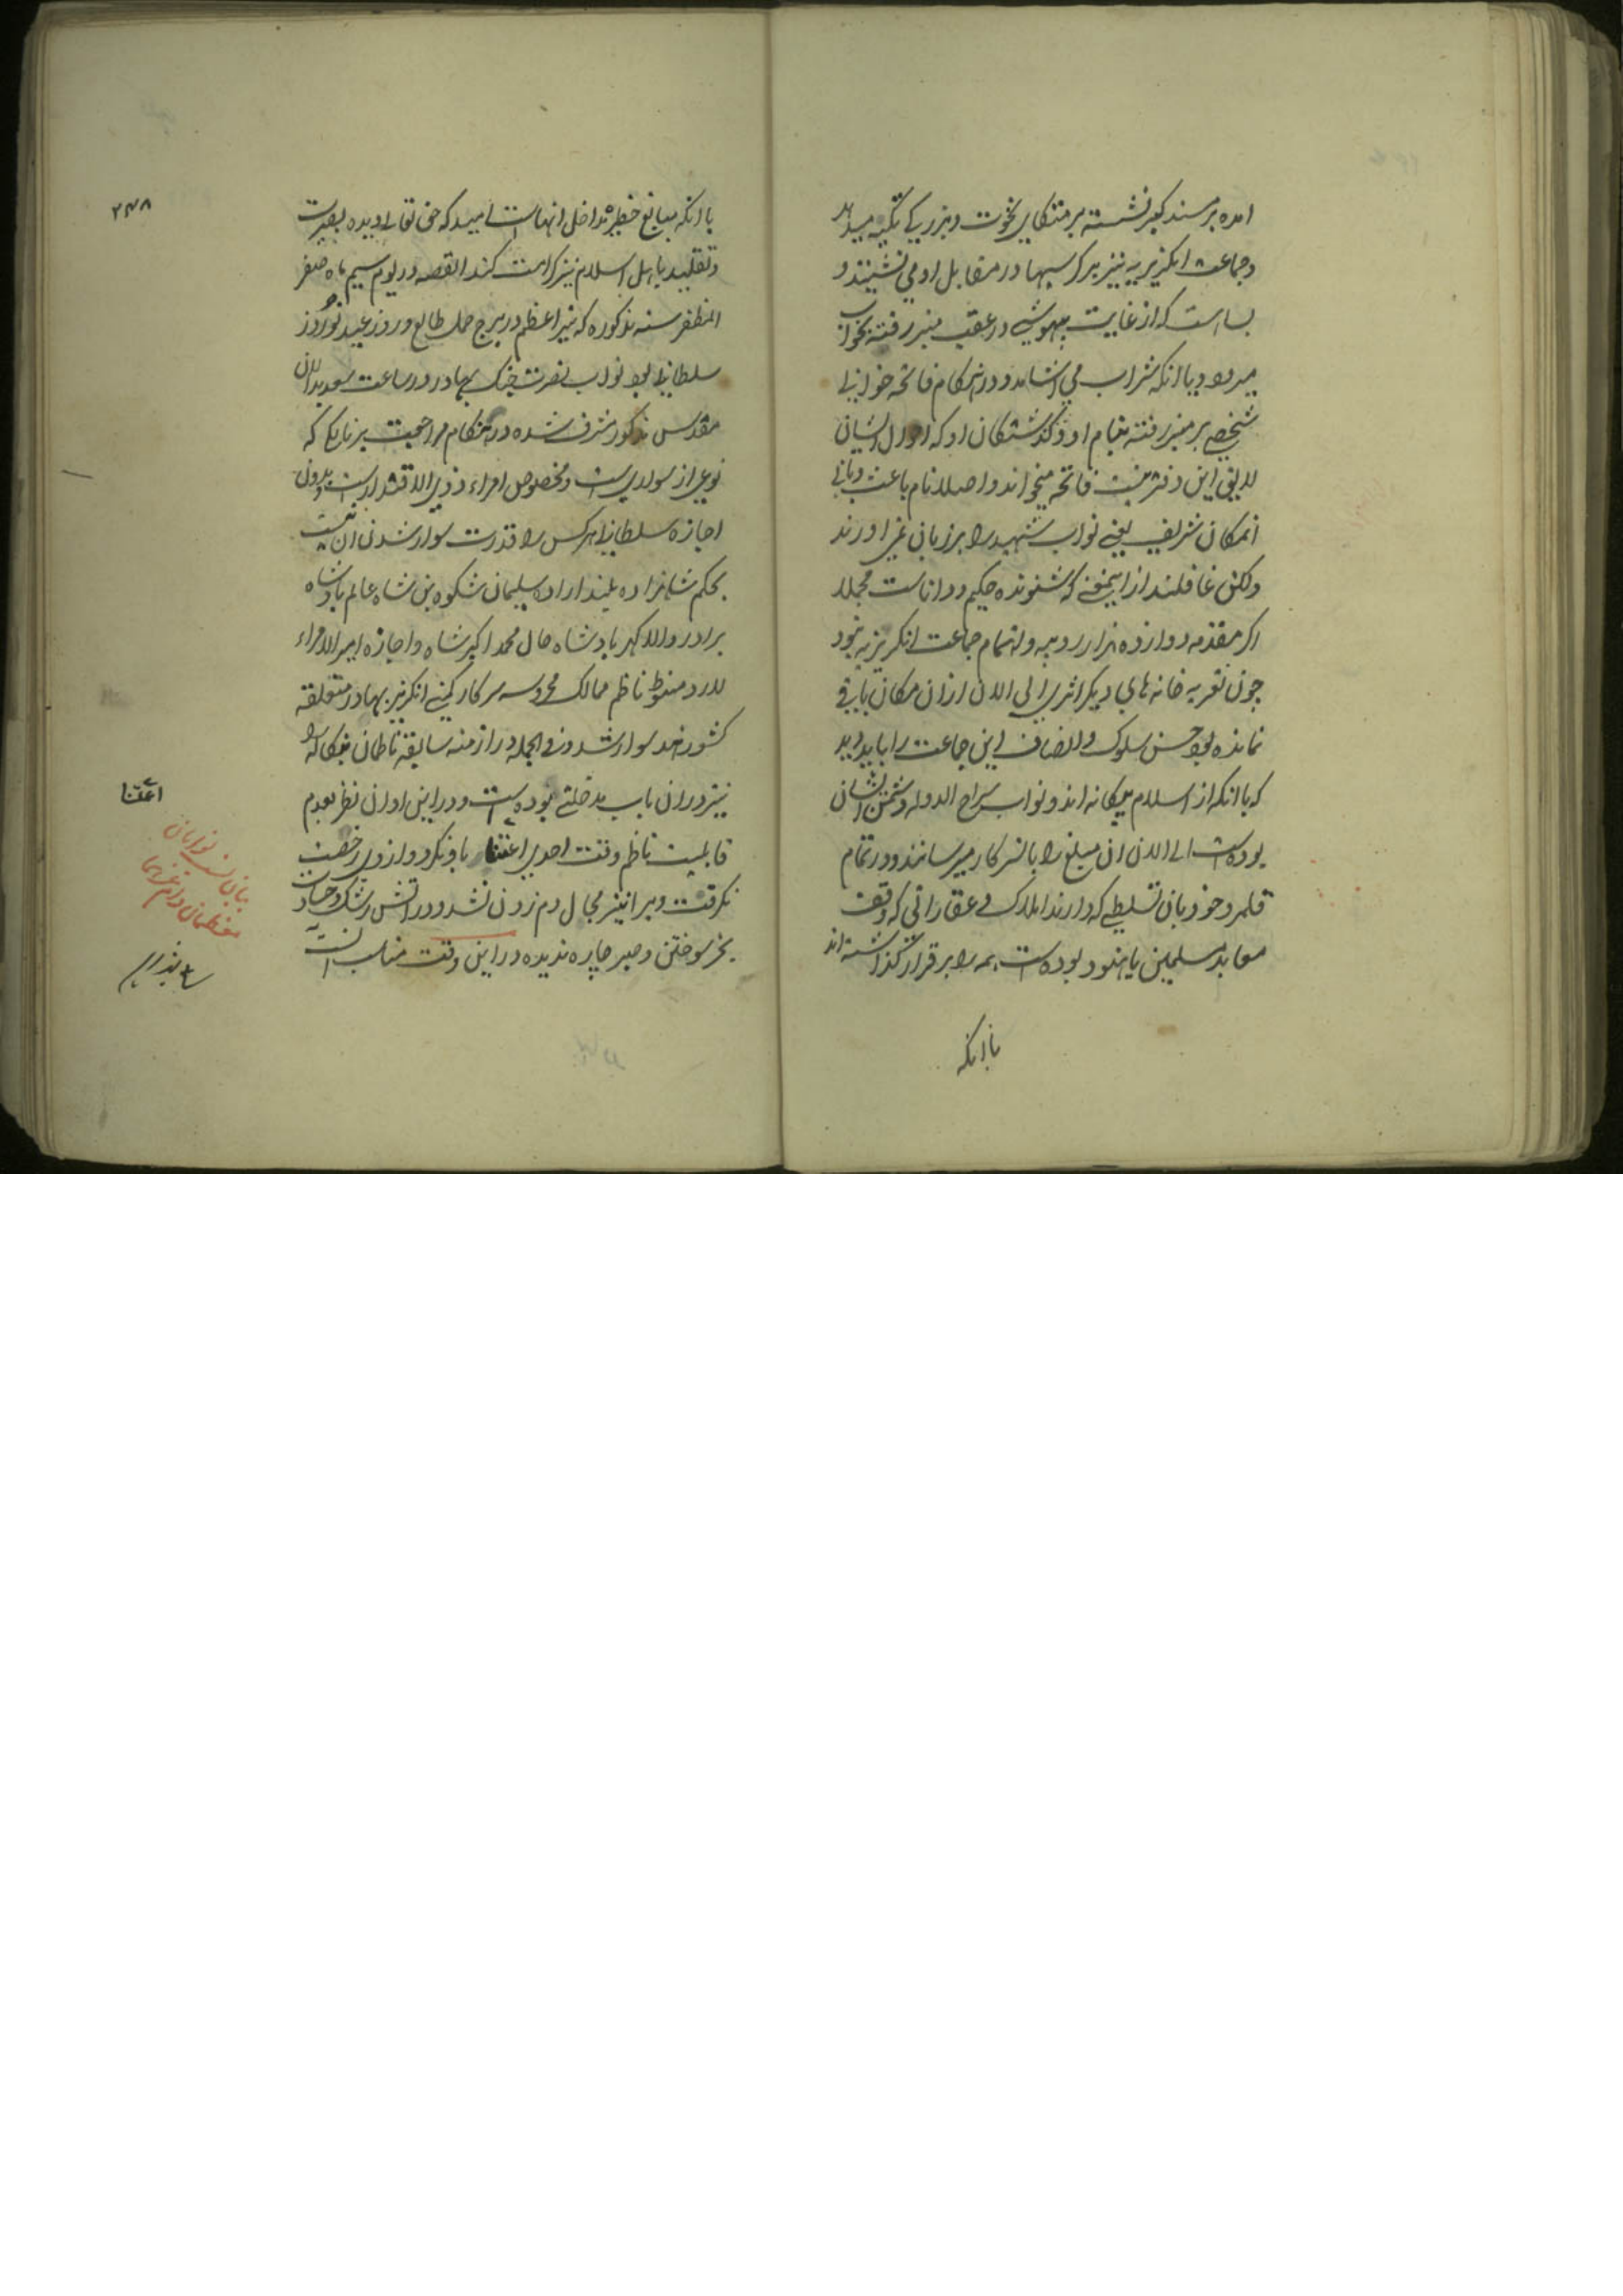 امده بر مسند کبر نشسته بر متکای نخوت و بزرگی تکیه میدهد
و جماعت انکریزیه نیز بر کرسیها در مقابل او می نشینند و
بسا است که از غایت بیهوشی در عقب منبر رفته بخواب
میرود و با انکه شراب می اشامد و در هنکام فاتحه خوانی
شخصی بر منبر رفته بنام او و کذشتکان او که اول ایشان
لایق این دفتر نیست فاتحه میخواند و اصلا نام باعث و بانی
انمکان شریف یعنی نواب شهید را بر زبان نمی اورند
ولکن غافلند از اینمعنی که شنونده حکیم و داناست مجملا
اکر مقدمه دوازده هزار روپیه و اهتمام جماعت انکریزیه نبود
چون تعزیه خانه های دیکر اثری الی الان از ان مکان باقی
نمانده بود حسن سلوک و انصاف این جماعت را باید دید
که با انکه از اسلام بیکانه اند و نواب سراج الدوله دشمن ایشان
بوده است الی الان ان مبلغ را بانسرکار میرسانند و در تمام
قلمرو خود بان تسلطی که دارند املاک و عقاراتی که وقف
معابد مسلمین یا هنود بوده است همه را برقرار کذاشته اند
با انکه
۲۳۸
با انکه مبالغ خطیره مداخل انهاست امید که حق تعالی دیده بصیرت
و تقلید باهل اسلام نیز کرامت کند القصه در یوم سیم ماه صفر
المظفر سنه مذکوره که نیر اعظم در برج حمل طالع و روز عید نوروز
سلطانی بود نواب نصرت جنک بهادر در ساعت سعید بدان
مقدس مذکور مشرف شده در هنکام مراجعت بر نالکی که
نوعی از سواری است و مخصوص امراء ذوی الاقتدار است و بدون
اجازه سلطانی هر کس را قدرت سوار شدن ان نیست
بحکم شاهزاده بلند اراده سلیمان شکوه بن شاه عالم پادشاه
برادر والا کهر پادشاه حال محمد اکبر شاه و اجازه امیر الامراء
لارد منتو ناظم ممالک محروسه سرکار کمپنی انکریز بهادر متعلقه
کشور هند سوار شدند و فی الجمله در ازمنه سابقه ناظمان بنکاله را
نیز در ان باب مدخلتی بوده است و در این اوان نظر بعدم
قابلیت ناظم وقت احدی اعتنا باو نکرد و از وی رخصت
نکرفت و ویرا نیز مجال دم زدن نشد و در اتش رشک و حسادت
بجز سوختن و صبر چاره ندیده در این وقت مناسب انست که
اعتنا
بیان نسب نوابان